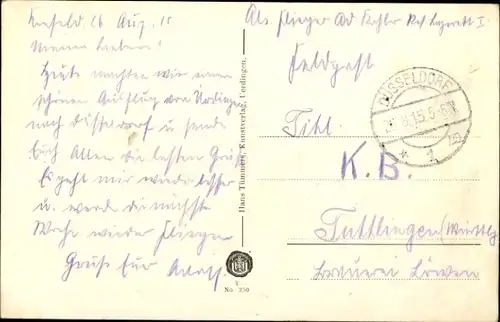 Krefeld 26 Aug. 15
Meine Lieben!
Heute machten wir einen
schönen Ausflug von Ürdingen
nach Düsseldorf u sende
Euch Allen die besten Grüße
Es geht mir wieder besser
u. werde die nächste
Woche wieder fliegen
Gruß Euer Adolf
Hans Tümmers, Kunstverlag, Uerdingen.
No 250
Abs. Flieger Ad Res. Lazarett I
Feldpost
DÜSSELDORF
26.8.15.5-6N
* 1
Titl.
K.B.
Tuttlingen (Württbg
Brauerei Löwen